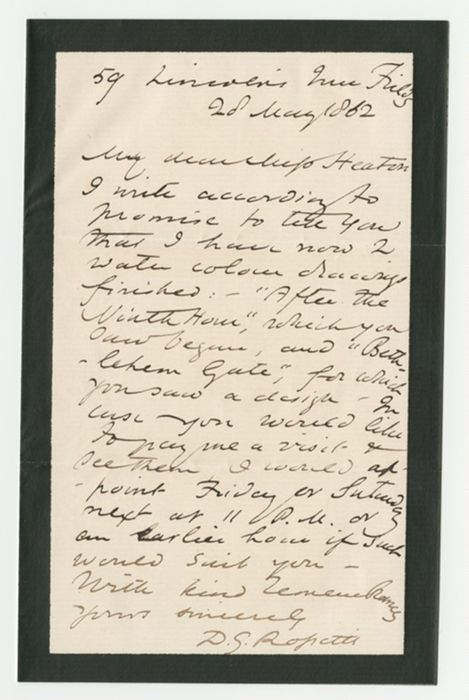 59 Lincoln's Inn Fields
28 May 1862
My dear Miss Heaton
I write according to
promise to tell you
that I have now 2
water colour drawings
finished: – "After the
Ninth Hour", which you
saw began, and "Beth-
-lehem Gate", for which
you saw a design – In
case you would like
to pay me a visit &
see them I would ap-
-point Friday or Saturday
next at 11 P.M. or
an earlier hour if such
would suit you –
With kind remembrances
yours sincerely
D. G. Rossetti